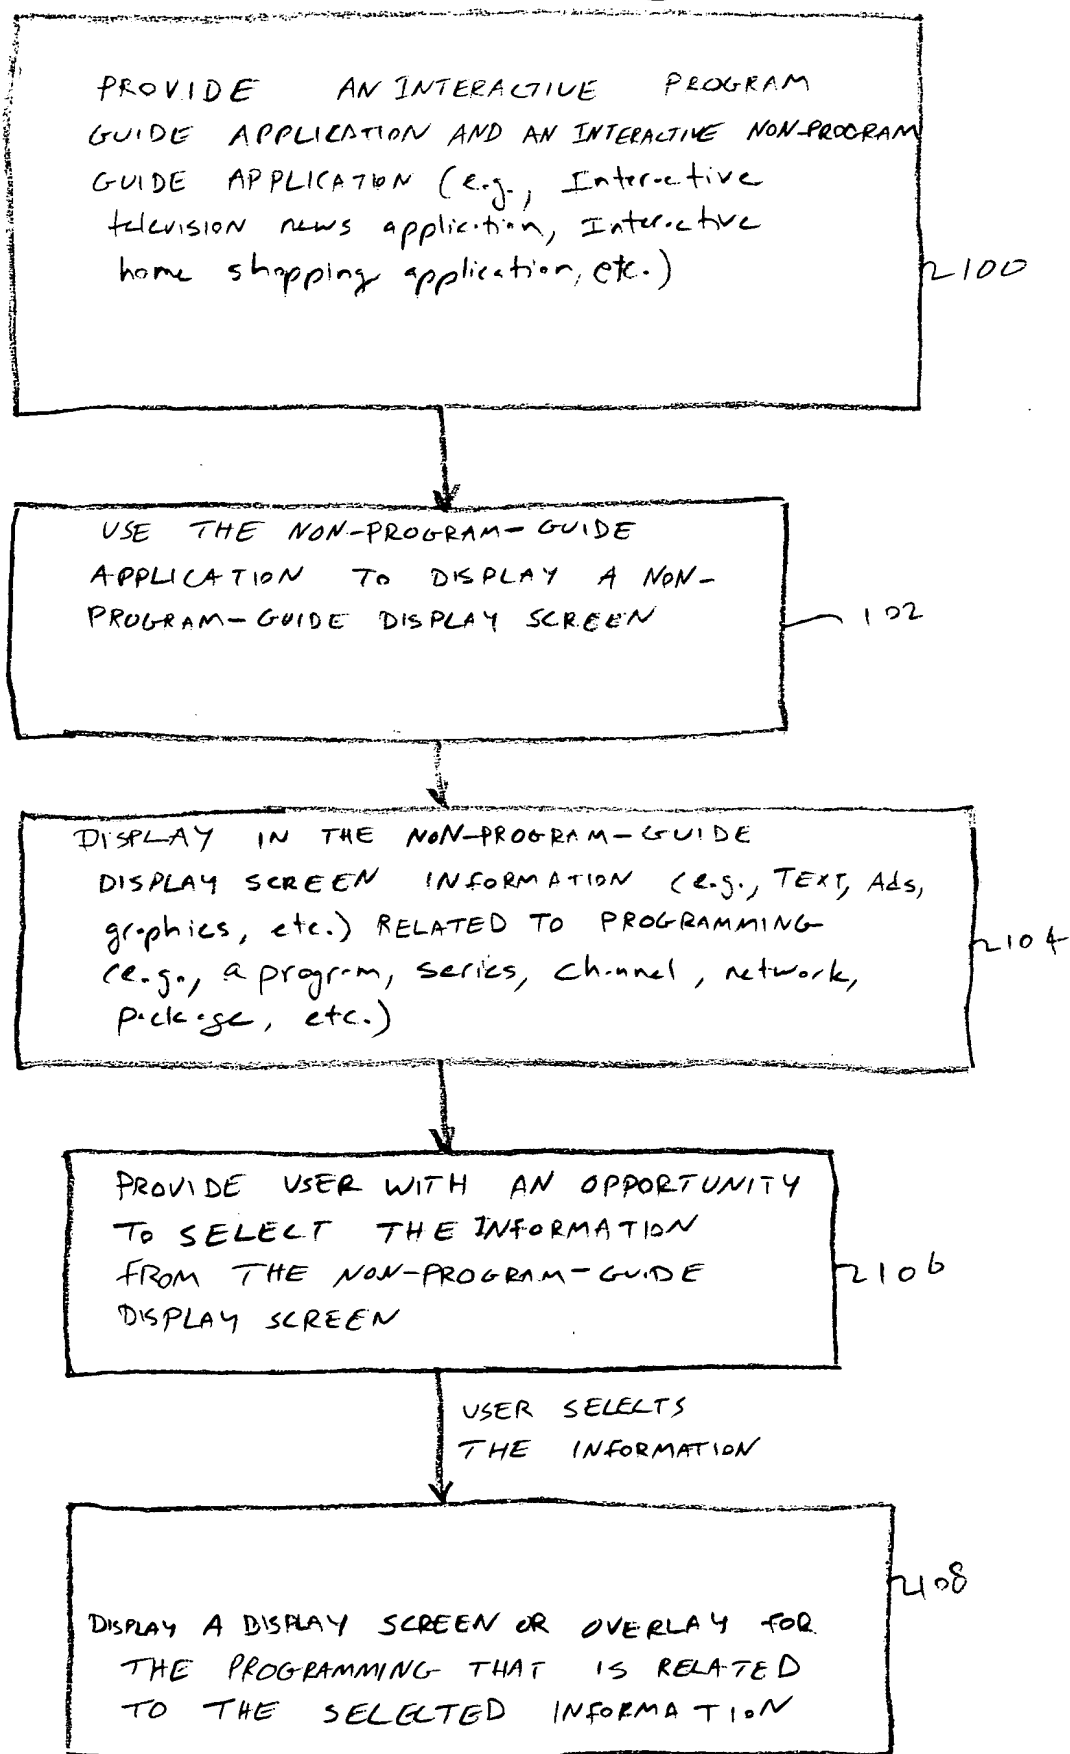 PROVIDE AN INTERACTIVE PROGRAM
GUIDE APPLICATION AND AN INTERACTIVE NON-PROGRAM
GUIDE APPLICATION (e.g., Interactive
television news application, Interactive
home shopping application, etc.)
100
USE THE NON-PROGRAM-GUIDE
APPLICATION TO DISPLAY A NON-
PROGRAM-GUIDE DISPLAY SCREEN
102
DISPLAY IN THE NON-PROGRAM-GUIDE
DISPLAY SCREEN INFORMATION (e.g., TEXT, Ads,
graphics, etc.) RELATED TO PROGRAMMING
(e.g., a program, series, channel, network,
package, etc.)
104
PROVIDE USER WITH AN OPPORTUNITY
TO SELECT THE INFORMATION
FROM THE NON-PROGRAM-GUIDE
DISPLAY SCREEN
106
USER SELECTS
THE INFORMATION
108
DISPLAY A DISPLAY SCREEN OR OVERLAY FOR
THE PROGRAMMING THAT IS RELATED
TO THE SELECTED INFORMATION